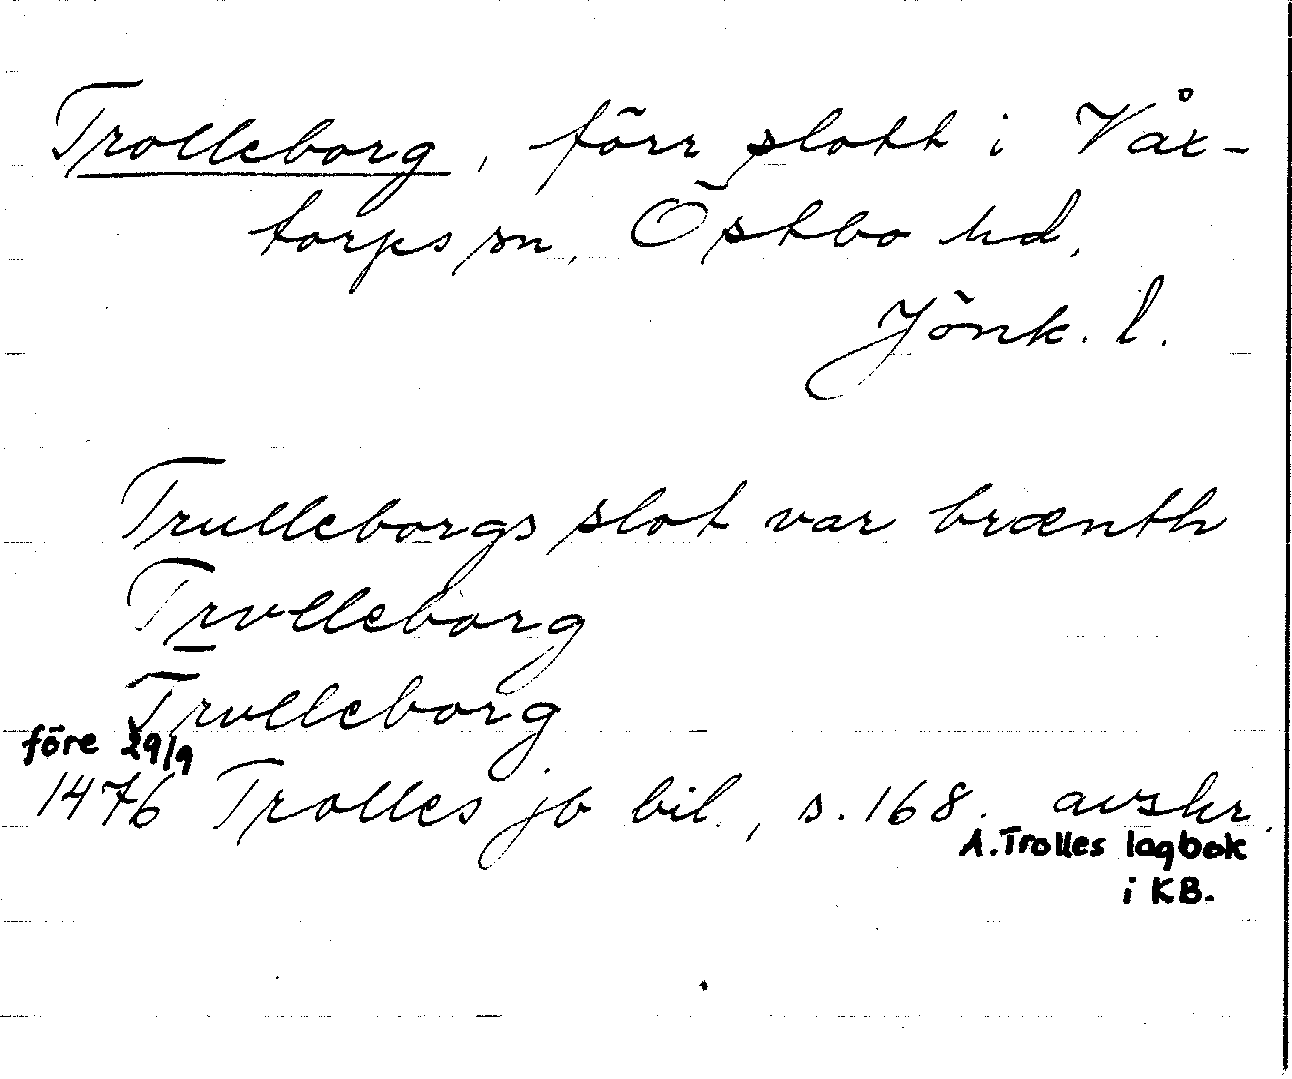 Trolleborg, förr slott i Våx-
torps sn, Östbo hd,
Jönk. l.
Trulleborgs slot var brænth
Trvlleborg
Trulleborg
före 29/9
1476 Trolles jb bil., s. 168. avskr.
A. Trolles lagbok
i KB.